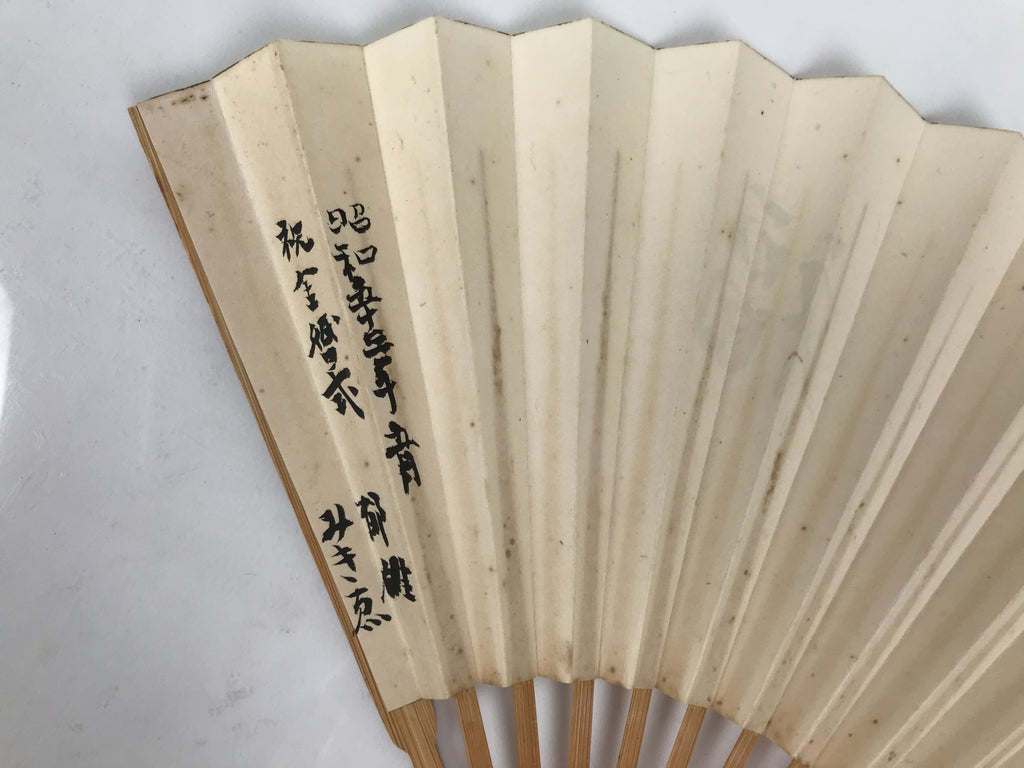 昭和五十三年五月
祝金婚式
郁雄
みき恵